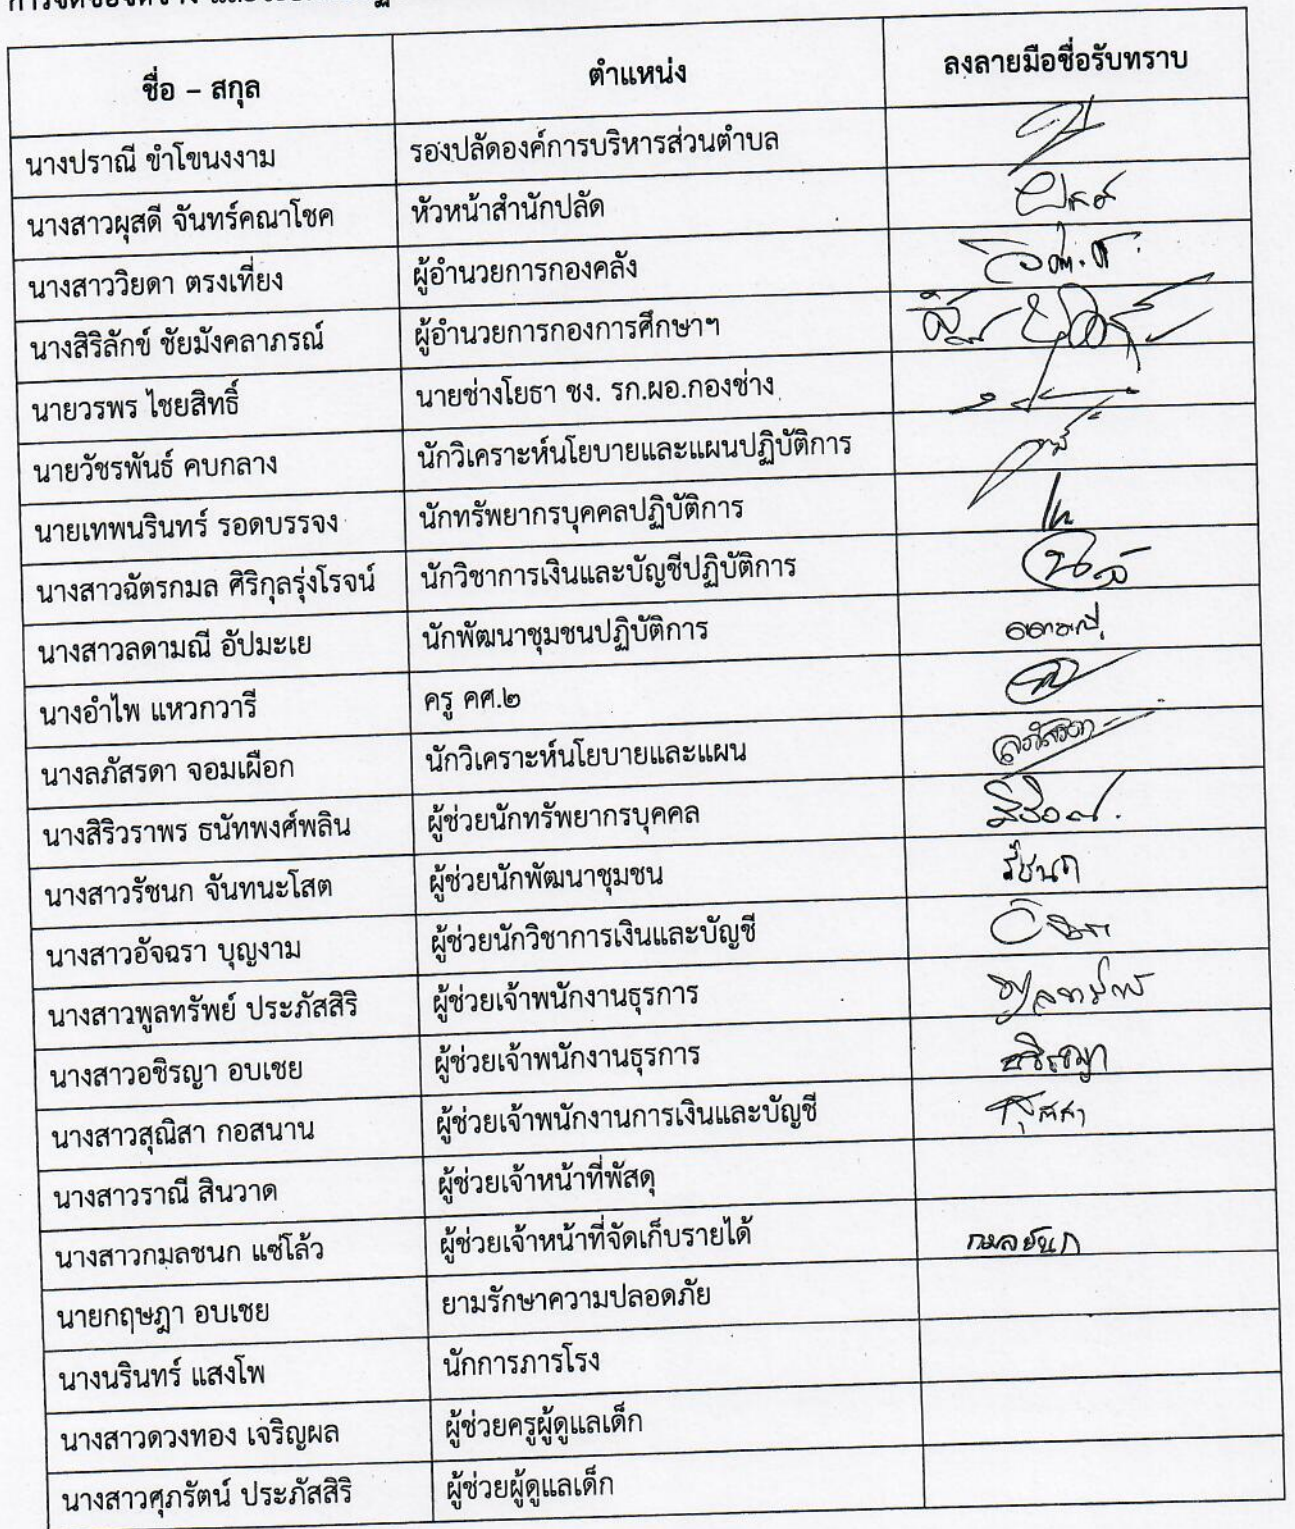 ชื่อ – สกุล ตำแหน่ง ลงลายมือชื่อรับทราบ
นางปราณี ขำโขนงงาม รองปลัดองค์การบริหารส่วนตำบล
นางสาวผุสดี จันทร์คณาโชค หัวหน้าสำนักปลัด
นางสาววิยดา ตรงเที่ยง ผู้อำนวยการกองคลัง
นางสิริลักข์ ชัยมังคลาภรณ์ ผู้อำนวยการกองการศึกษาฯ
นายวรพร ไชยสิทธิ์ นายช่างโยธา ชง. รก.ผอ.กองช่าง
นายวัชรพันธ์ คบกลาง นักวิเคราะห์นโยบายและแผนปฏิบัติการ
นายเทพนรินทร์ รอดบรรจง นักทรัพยากรบุคคลปฏิบัติการ
นางสาวฉัตรกมล ศิริกุลรุ่งโรจน์ นักวิชาการเงินและบัญชีปฏิบัติการ
นางสาวลดามณี อัปมะเย นักพัฒนาชุมชนปฏิบัติการ ลดามณี
นางอำไพ แหวกวารี ครู คศ.๒
นางลภัสรดา จอมเผือก นักวิเคราะห์นโยบายและแผน ลภัสรดา
นางสิริวราพร ธนัทพงศ์พลิน ผู้ช่วยนักทรัพยากรบุคคล
นางสาวรัชนก จันทนะโสต ผู้ช่วยนักพัฒนาชุมชน รัชนก
นางสาวอัจฉรา บุญงาม ผู้ช่วยนักวิชาการเงินและบัญชี
นางสาวพูลทรัพย์ ประภัสสิริ ผู้ช่วยเจ้าพนักงานธุรการ พูลทรัพย์
นางสาวอชิรญา อบเชย ผู้ช่วยเจ้าพนักงานธุรการ อชิรญา
นางสาวสุณิสา กอสนาน ผู้ช่วยเจ้าพนักงานการเงินและบัญชี
นางสาวราณี สินวาด ผู้ช่วยเจ้าหน้าที่พัสดุ
นางสาวกมลชนก แซ่โล้ว ผู้ช่วยเจ้าหน้าที่จัดเก็บรายได้ กมลชนก
นายกฤษฎา อบเชย ยามรักษาความปลอดภัย
นางนรินทร์ แสงโพ นักการภารโรง
นางสาวดวงทอง เจริญผล ผู้ช่วยครูผู้ดูแลเด็ก
นางสาวศุภรัตน์ ประภัสสิริ ผู้ช่วยผู้ดูแลเด็ก